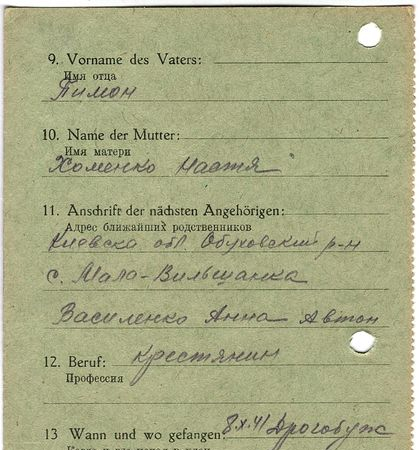 9. Vorname des Vaters:
Имя отца
Пимон
10. Name der Mutter:
Имя матери
Хоменко Настя
11. Anschrift der nächsten Angehörigen:
Адрес ближайших родственников
Киевска обл. Обуховский р-н
с. Мала-Вильшанка
Василенко Анна Автон
12. Beruf: крестянин
Профессия
13 Wann und wo gefangen: 8.X.41 Дрогобуж